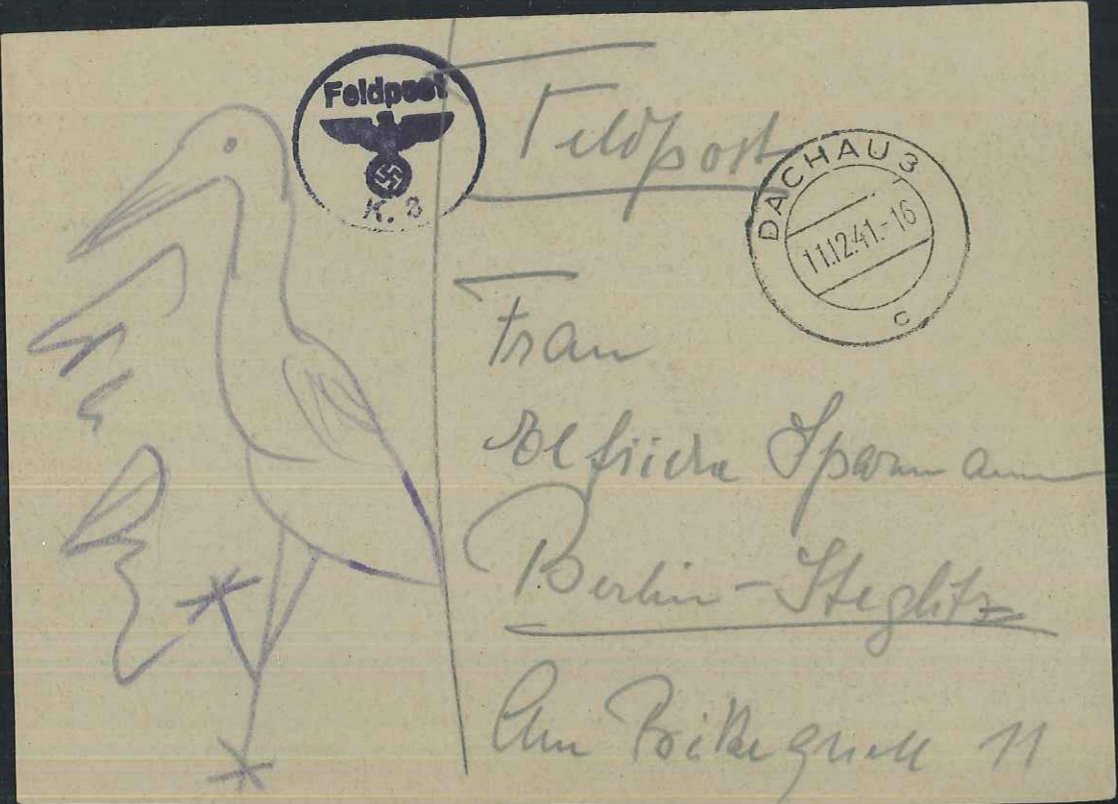 Feldpost
K. 3
Feldpost
DACHAU 3
11.12.41.-16
c
Frau
Elfriede
Berlin-Steglitz
Am 11